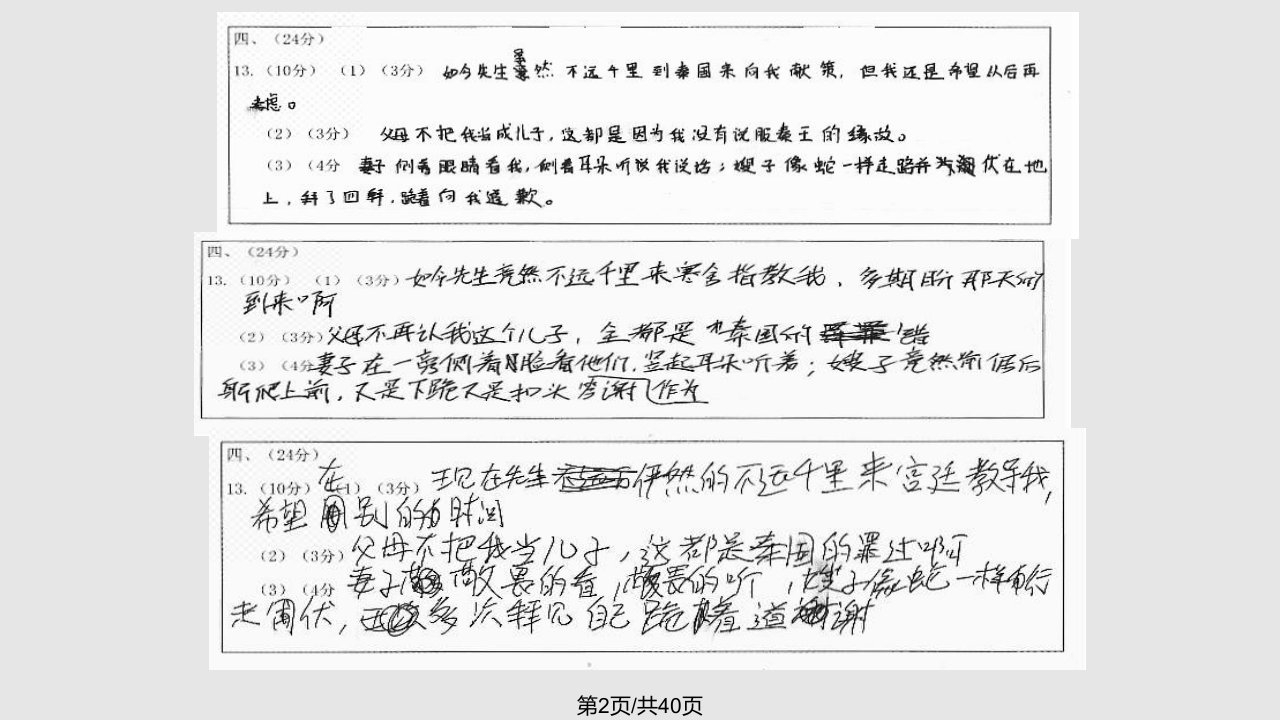 四、（24分）
13.（10分）（1）（3分）如今先生虽然不远千里到秦国来向我献策，但我还是希望从后再
考虑。
（2）（3分）父母不把我当成儿子，这都是因为我没有说服秦王的缘故。
（3）（4分 妻子侧着眼睛看我，侧着耳朵听说我说话；嫂子像蛇一样走路并伏在地
上，拜了四拜，跪着向我道歉。
四、（24分）
13.（10分）（1）（3分）如今先生竟然不远千里来寒舍指教我，多期盼那天的
到来啊
（2）（3分）父母不再认我这个儿子，全都是秦国的错
（3）（4分 妻子在一旁侧着脸看他们，竖起耳朵听着；嫂子竟然前倨后
躬爬上前，又是下跪又是扣头 作为
四、（24分）
13.（10分）（1）（3分）在 现在先生俨然的不远千里来宫廷教导我，
希望别的时间
（2）（3分）父母不把我当儿子，这都是秦国的罪过啊
（3）（4分 妻子的看，的听，嫂子像蛇一样行
走匍伏，多次拜见自己跪着道谢
第2页/共40页